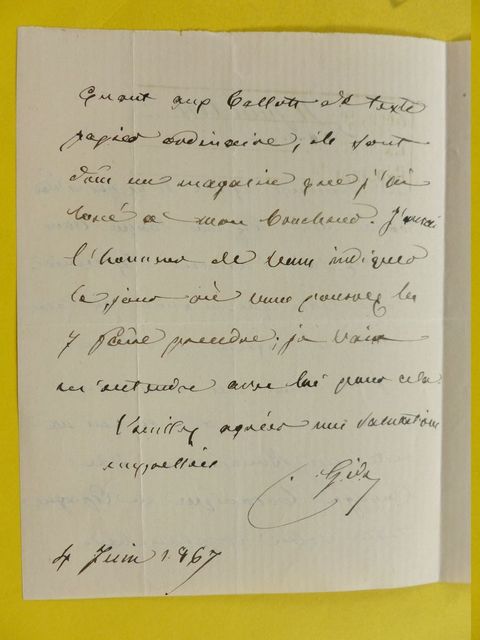 Quant aux ballots de texte
papier ordinaire, ils sont
dans un magasin que j'ai
loué à mon boucher. J'aurai
l'honneur de vous indiquer
le jour où vous pourrez les
y faire prendre; je vais
m'entendre avec lui pour cela
Veuillez agréer mes salutations
empressées
Gide
4 Juin 1867